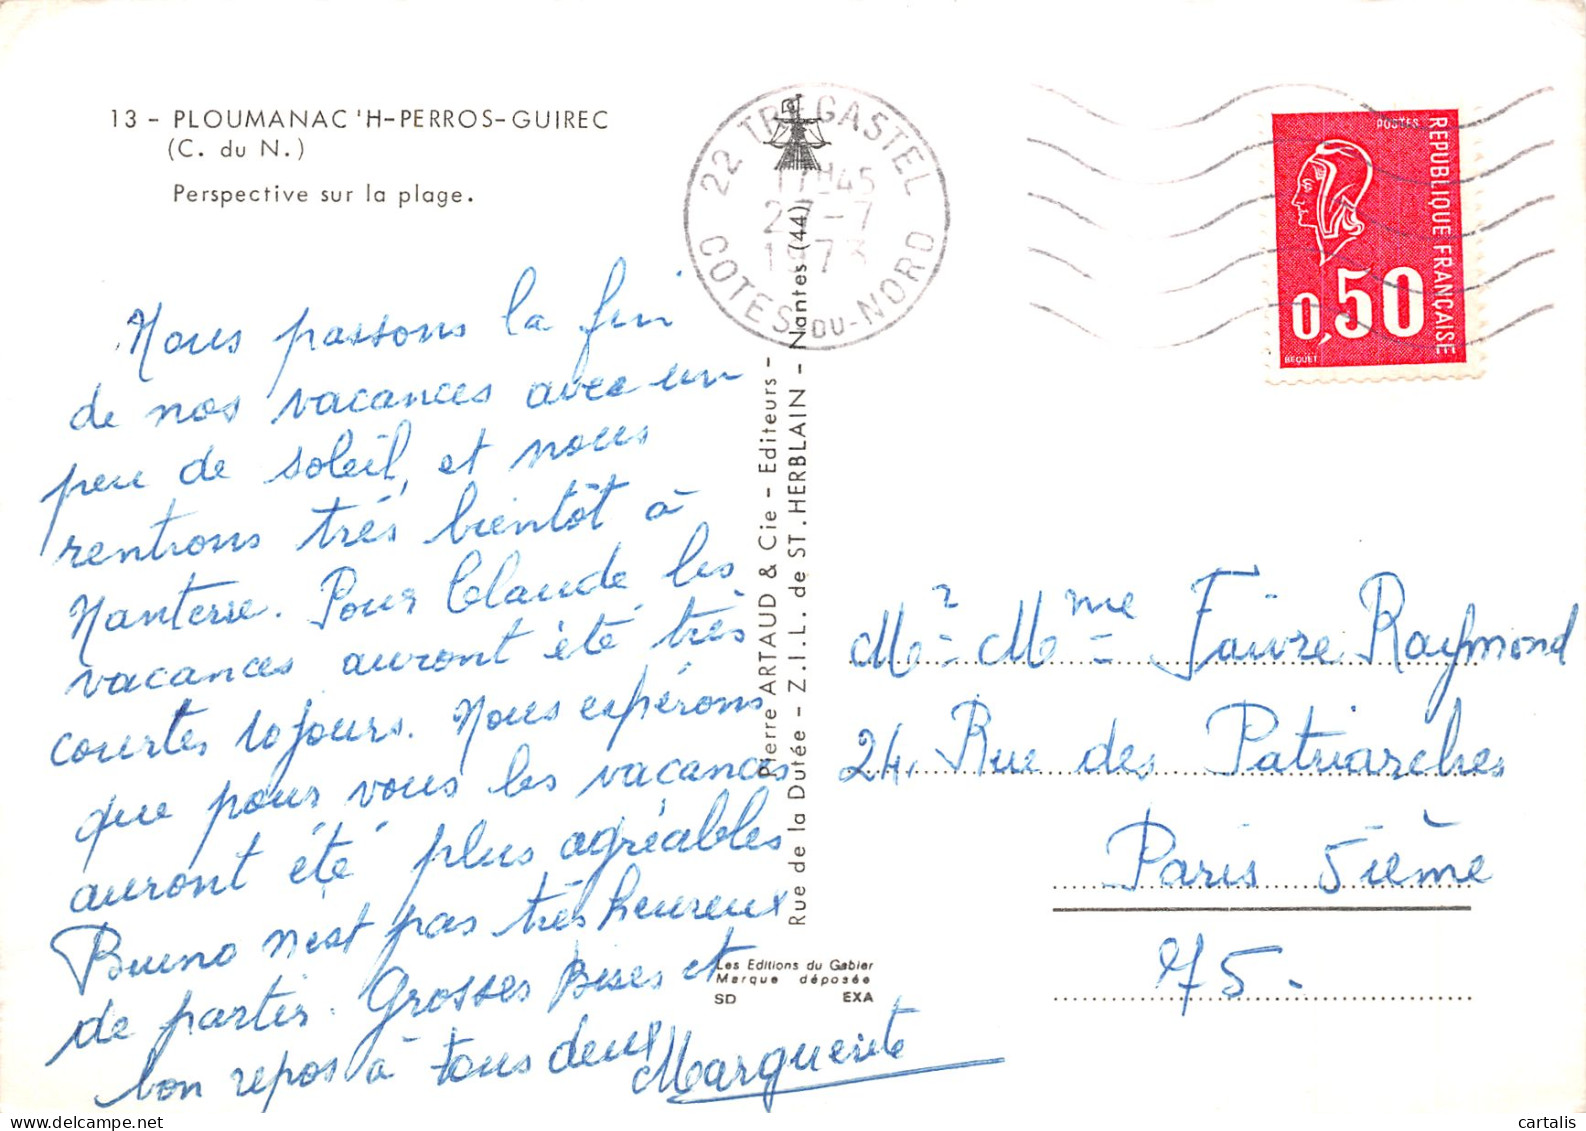 13 - PLOUMANAC'H-PERROS-GUIREC
(C. du N.)
Perspective sur la plage.
Nous passons la fin
de nos vacances avec un
peu de soleil, et nous
rentrons très bientôt à
Nanterre. Pour Claude les
vacances auront été très
courtes 10 jours. Nous espérons
que pour vous les vacances
auront été plus agréables
Bruno n'est pas très heureux
de partir. Grosses Bises et
bon repos à tous deux
Marguerite
22 TREGASTEL
17H45
27-7
1973
COTES-DU-NORD
Pierre ARTAUD & Cie - Editeurs -
Rue de la Dutée - Z.I.L. de ST. HERBLAIN - Nantes (44)
Les Editions du Gabier
Marque déposée
SD EXA
POSTES
REPUBLIQUE FRANÇAISE
0,50
BEQUET
Mr = Mme = Faivre Raymond
24, Rue des Patriarches
Paris 5ième
75.
cartalis